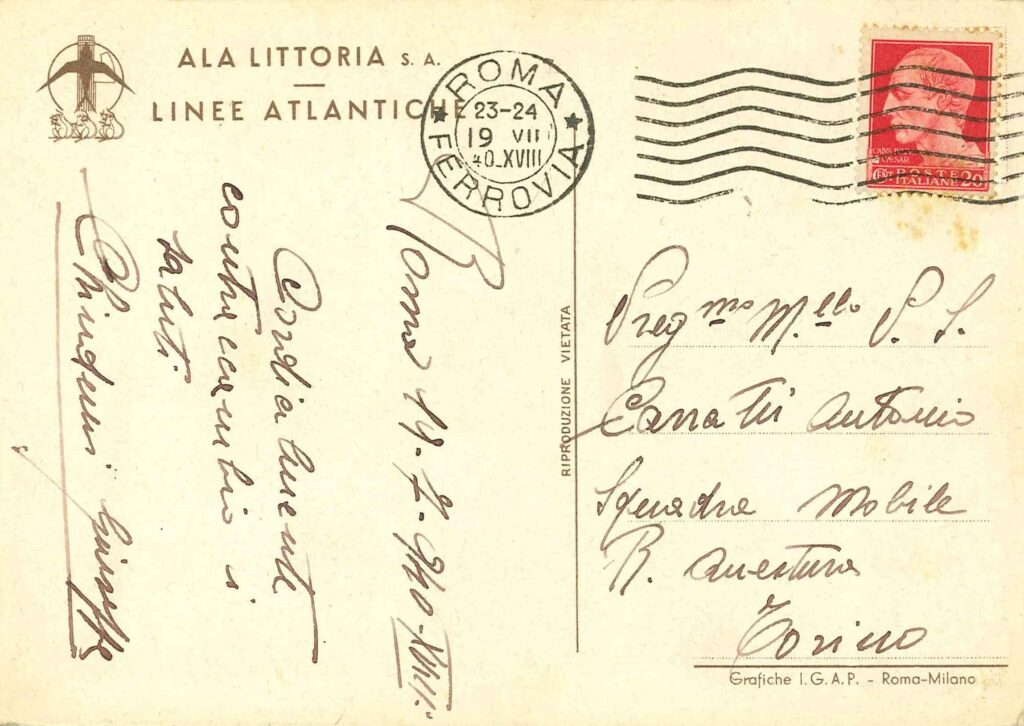 ALA LITTORIA S. A.
LINEE ATLANTICHE
ROMA
23-24
19 VII
40.XVIII
FERROVIA
POSTE
CENT ITALIANE 20
CAESAR
Roma 19-7-940-XVIII.
Cordialmente
contraccambio i
saluti.
Giuseppe
RIPRODUZIONE VIETATA
Preg mo M.llo P. S.
Antonio
Squadra Mobile
R. Questura
Torino
Grafiche I.G.A.P. - Roma-Milano